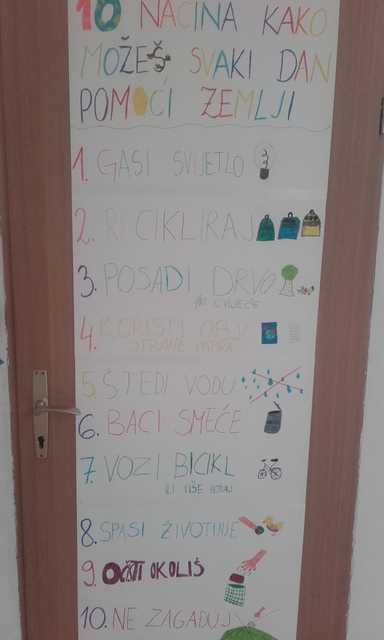 10 NAČINA KAKO
MOŽEŠ SVAKI DAN
POMOĆI ZEMLJI
1. GASI SVIJETLO
2. RICIKLIRAJ
3. POSADI DRVO
ILI CVIJEĆE
4. KORISTI OBJE
STRANE PAPIRA
5. ŠTEDI VODU
6. BACI SMEĆE
7. VOZI BICIKL
ILI VIŠE HODAJ
8. SPASI ŽIVOTINJE
9. OČISTI OKOLIŠ
10. NE ZAGAĐUJ